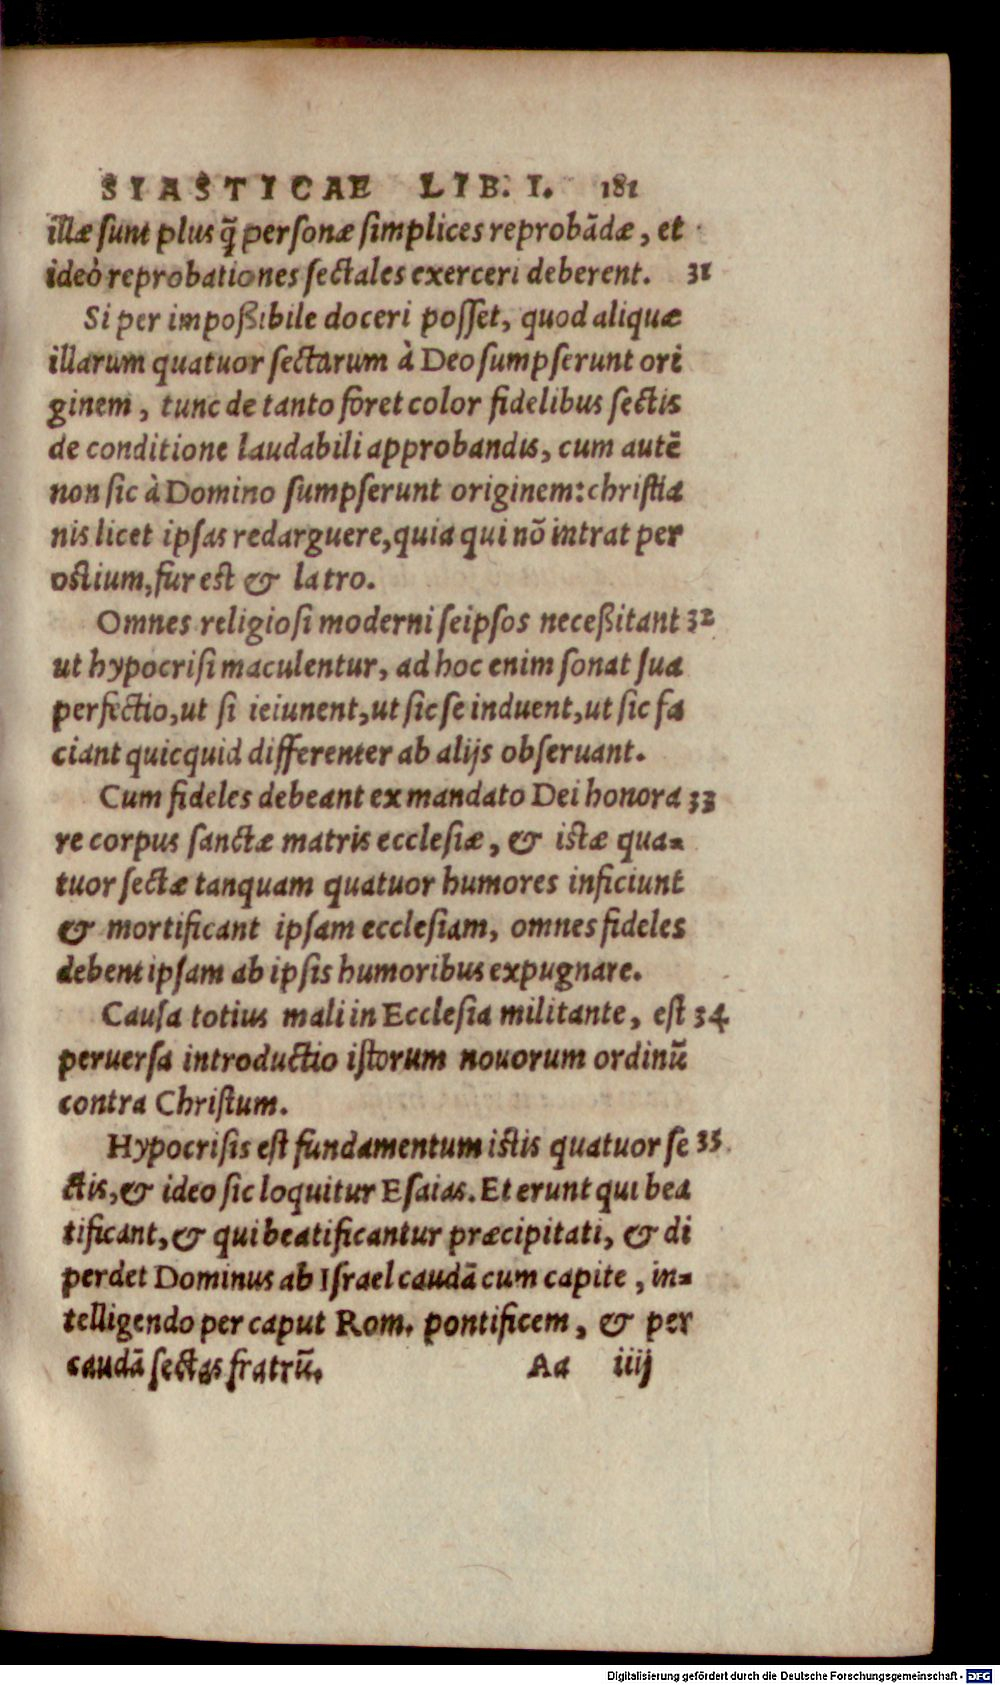 SIASTICAE LIB. I. 181
illæ sunt plus q̃ personæ simplices reprobãdæ, et
ideò reprobationes sectales exerceri deberent. 31
Si per impoßibile doceri posset, quod aliquæ
illarum quatuor sectarum à Deo sumpserunt ori
ginem, tunc de tanto foret color fidelibus sectis
de conditione laudabili approbandis, cum autẽ
non sic à Domino sumpserunt originem: christia
nis licet ipsas redarguere, quia qui nõ intrat per
ostium, fur est & latro.
Omnes religiosi moderni seipsos neceßitant 32
ut hypocrisi maculentur, ad hoc enim sonat sua
perfectio, ut si ieiunent, ut sic se induent, ut sic fa
ciant quicquid differenter ab alijs obseruant.
Cum fideles debeant ex mandato Dei honora 33
re corpus sanctæ matris ecclesiæ, & istæ qua-
tuor sectæ tanquam quatuor humores inficiunt
& mortificant ipsam ecclesiam, omnes fideles
debent ipsam ab ipsis humoribus expugnare.
Causa totius mali in Ecclesia militante, est 34
peruersa introductio istorum nouorum ordinũ
contra Christum.
Hypocrisis est fundamentum istis quatuor se 35
ctis, & ideo sic loquitur Esaias. Et erunt qui bea
tificant, & qui beatificantur præcipitati, & di
perdet Dominus ab Israel caudã cum capite, in-
telligendo per caput Rom. pontificem, & per
caudã sectas fratrũ. Aa iiij
Digitalisierung gefördert durch die Deutsche Forschungsgemeinschaft - DFG